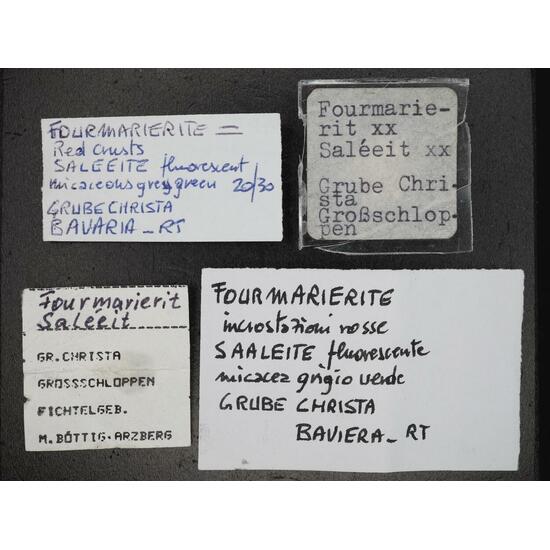 FOURMARIERITE =
Red Crusts
SALEEITE fluorescent
micaceous grey green 20/30
GRUBE CHRISTA
BAVARIA_RT
Fourmarie-
rit xx
Saléeit xx
Grube Chri-
sta
Großschlop-
pen
Fourmarierit
Saléeit
GR.CHRISTA
GROSSSCHLOPPEN
FICHTELGEB.
M.BÖTTIG.ARZBERG
FOURMARIERITE
incrostazioni rosse
SAALEITE fluorescente
micacea grigio verde
GRUBE CHRISTA
BAVIERA_RT